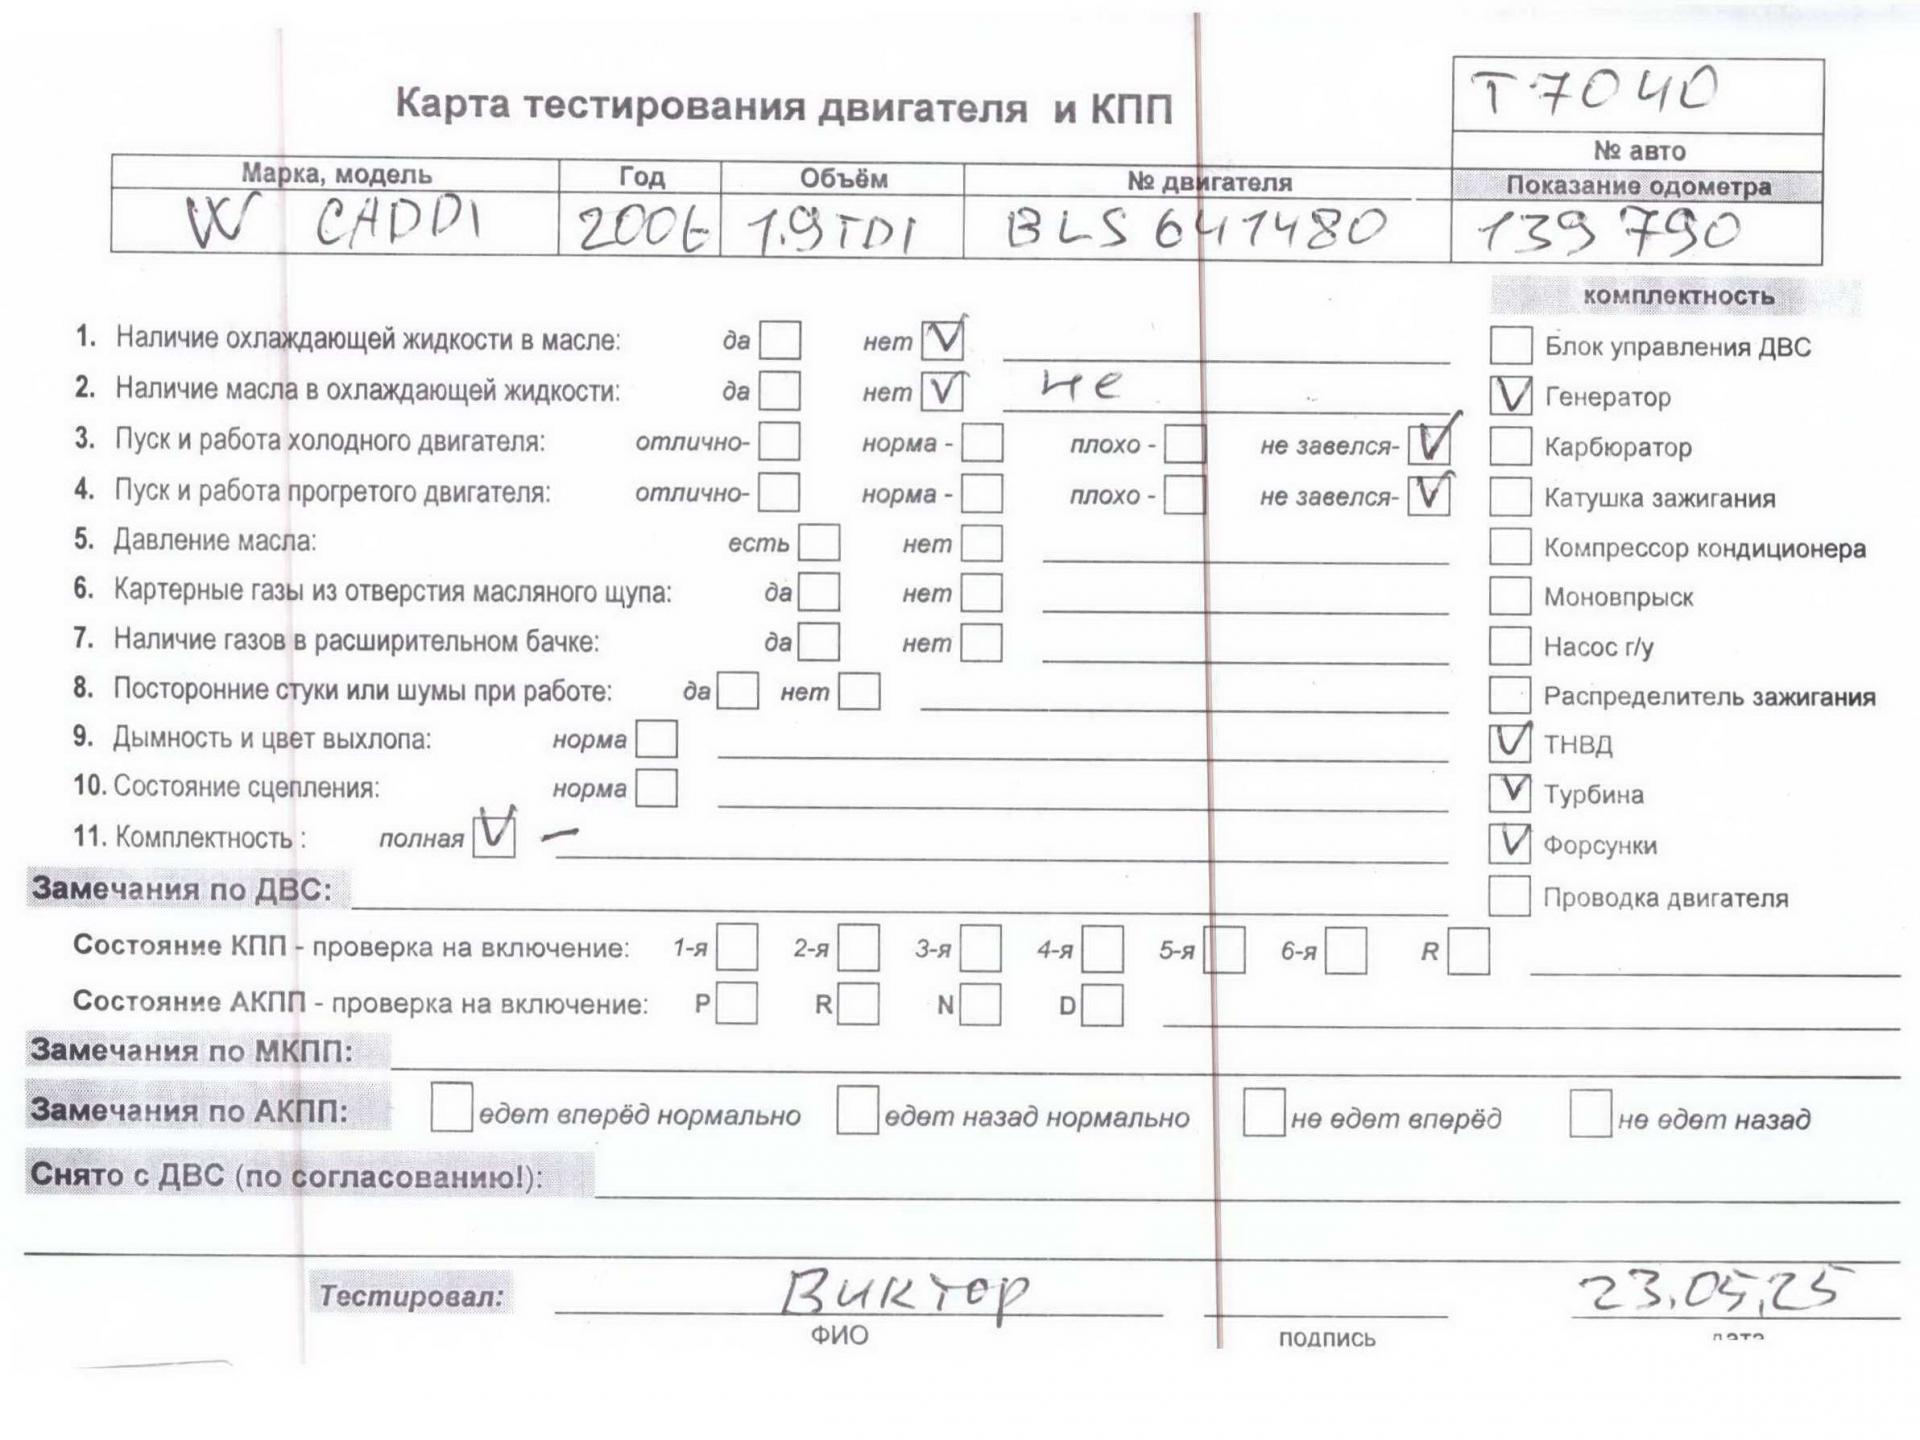 Т 7040
Карта тестирования двигателя и КПП
№ авто
Марка, модель Год Объём № двигателя Показание одометра
VW CADDI 2006 1.9 TDI BLS 641480 139 790
комплектность
1. Наличие охлаждающей жидкости в масле: да нет V
Блок управления ДВС
2. Наличие масла в охлаждающей жидкости: да нет V не
V Генератор
3. Пуск и работа холодного двигателя: отлично- норма - плохо - не завелся- V
Карбюратор
4. Пуск и работа прогретого двигателя: отлично- норма - плохо - не завелся- V
Катушка зажигания
5. Давление масла: есть нет
Компрессор кондиционера
6. Картерные газы из отверстия масляного щупа: да нет
Моновпрыск
7. Наличие газов в расширительном бачке: да нет
Насос г/у
8. Посторонние стуки или шумы при работе: да нет
Распределитель зажигания
9. Дымность и цвет выхлопа: норма
V ТНВД
10. Состояние сцепления: норма
V Турбина
11. Комплектность : полная V –
V Форсунки
Замечания по ДВС:
Проводка двигателя
Состояние КПП - проверка на включение: 1-я 2-я 3-я 4-я 5-я 6-я R
Состояние АКПП - проверка на включение: P R N D
Замечания по МКПП:
Замечания по АКПП: едет вперёд нормально едет назад нормально не едет вперёд не едет назад
Снято с ДВС (по согласованию!):
Тестировал: Виктор 23.05.25
ФИО подпись дата